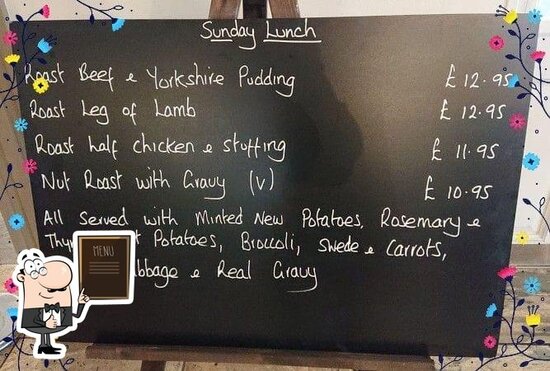 Sunday Lunch
Roast Beef & Yorkshire Pudding £12.95
Roast Leg of Lamb £12.95
Roast half chicken & stuffing £11.95
Nut Roast with Gravy (V) £10.95
All Served with Minted New Potatoes, Rosemary &
Potatoes, Broccoli, Swede & Carrots,
& Real Gravy
MENU